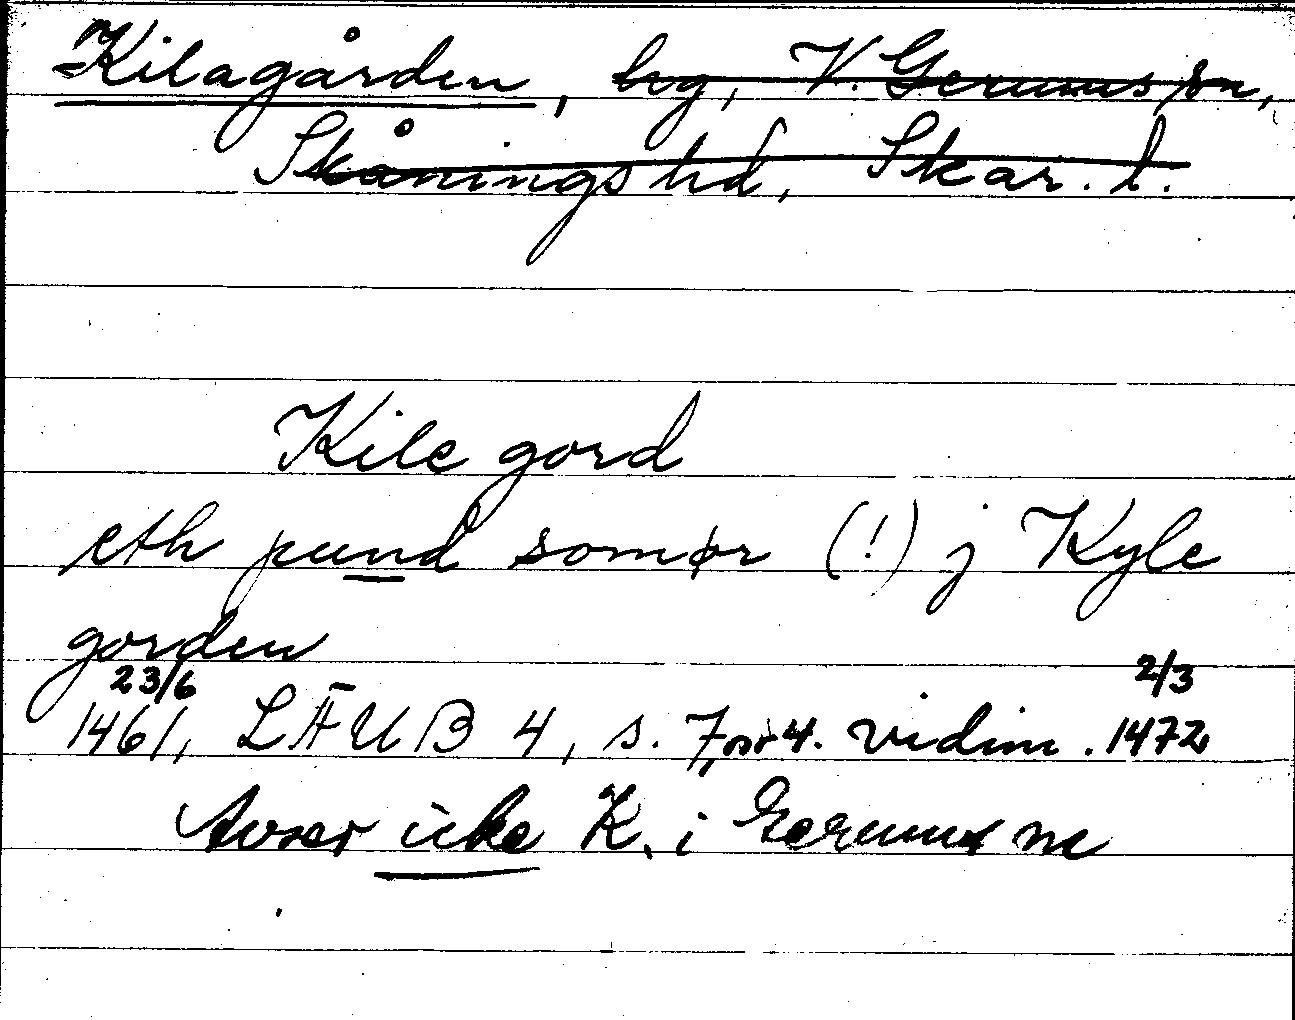 Kilagården, beg, V. Gerums sn,
Skånings hd, Skar. l.
Kile gord
eth pund somør (!) j Kyle
gorden
23/6 2/3
1461, LÄUB 4, s. 7, nr 4. vidim. 1472
Avser icke K. i Gerums sn